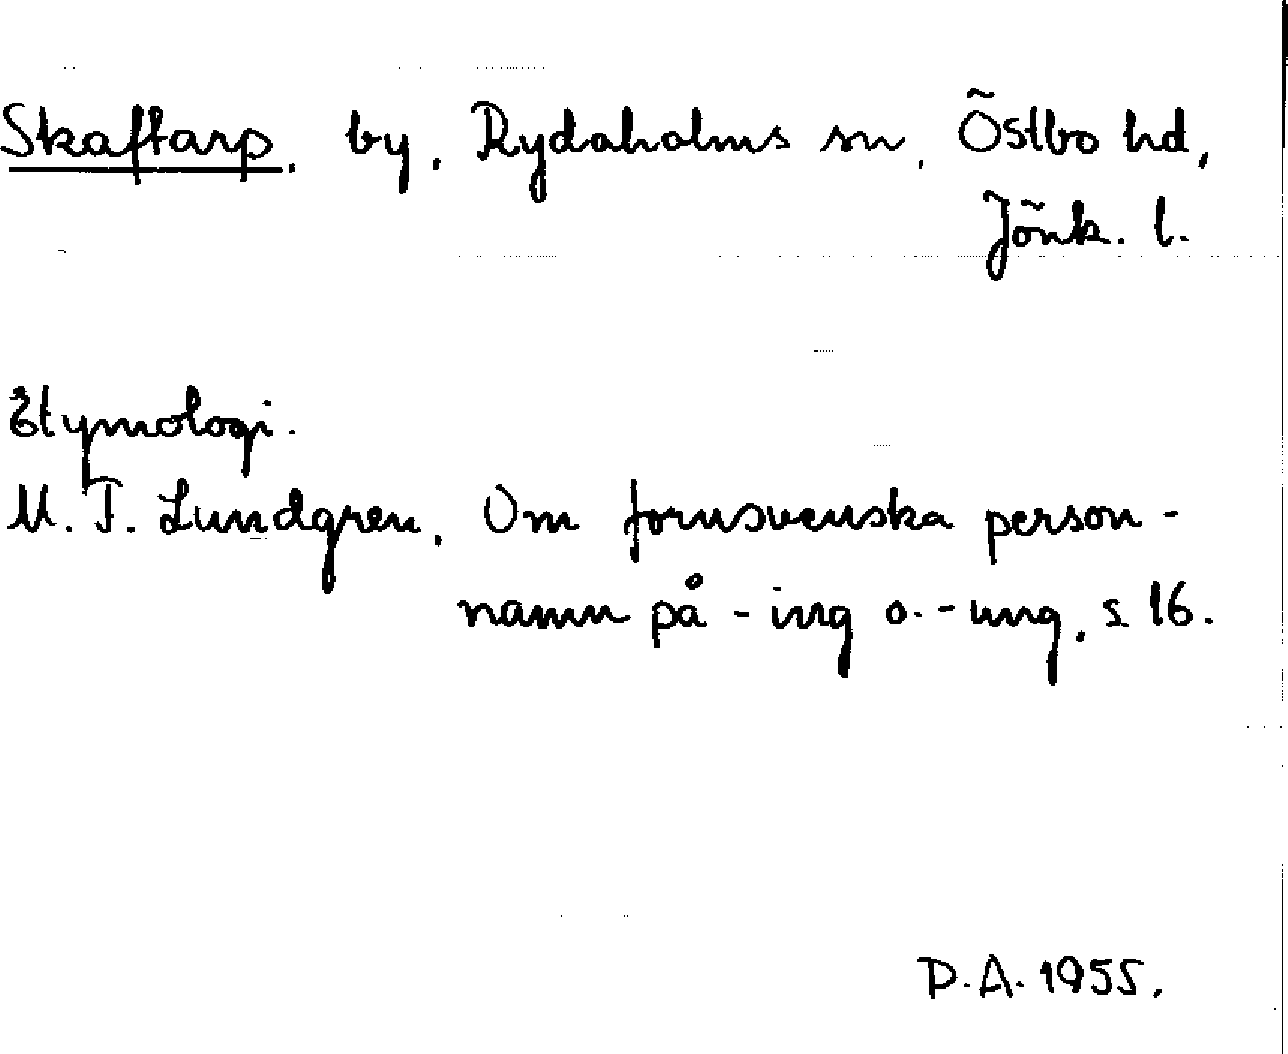 Skaftarp, by, Rydaholms sn, Östbo hd,
Jönk. l.
Etymologi.
M. F. Lundgren, Om fornsvenska person-
namn på -ing o. -ung, s 16.
D.A. 1955.